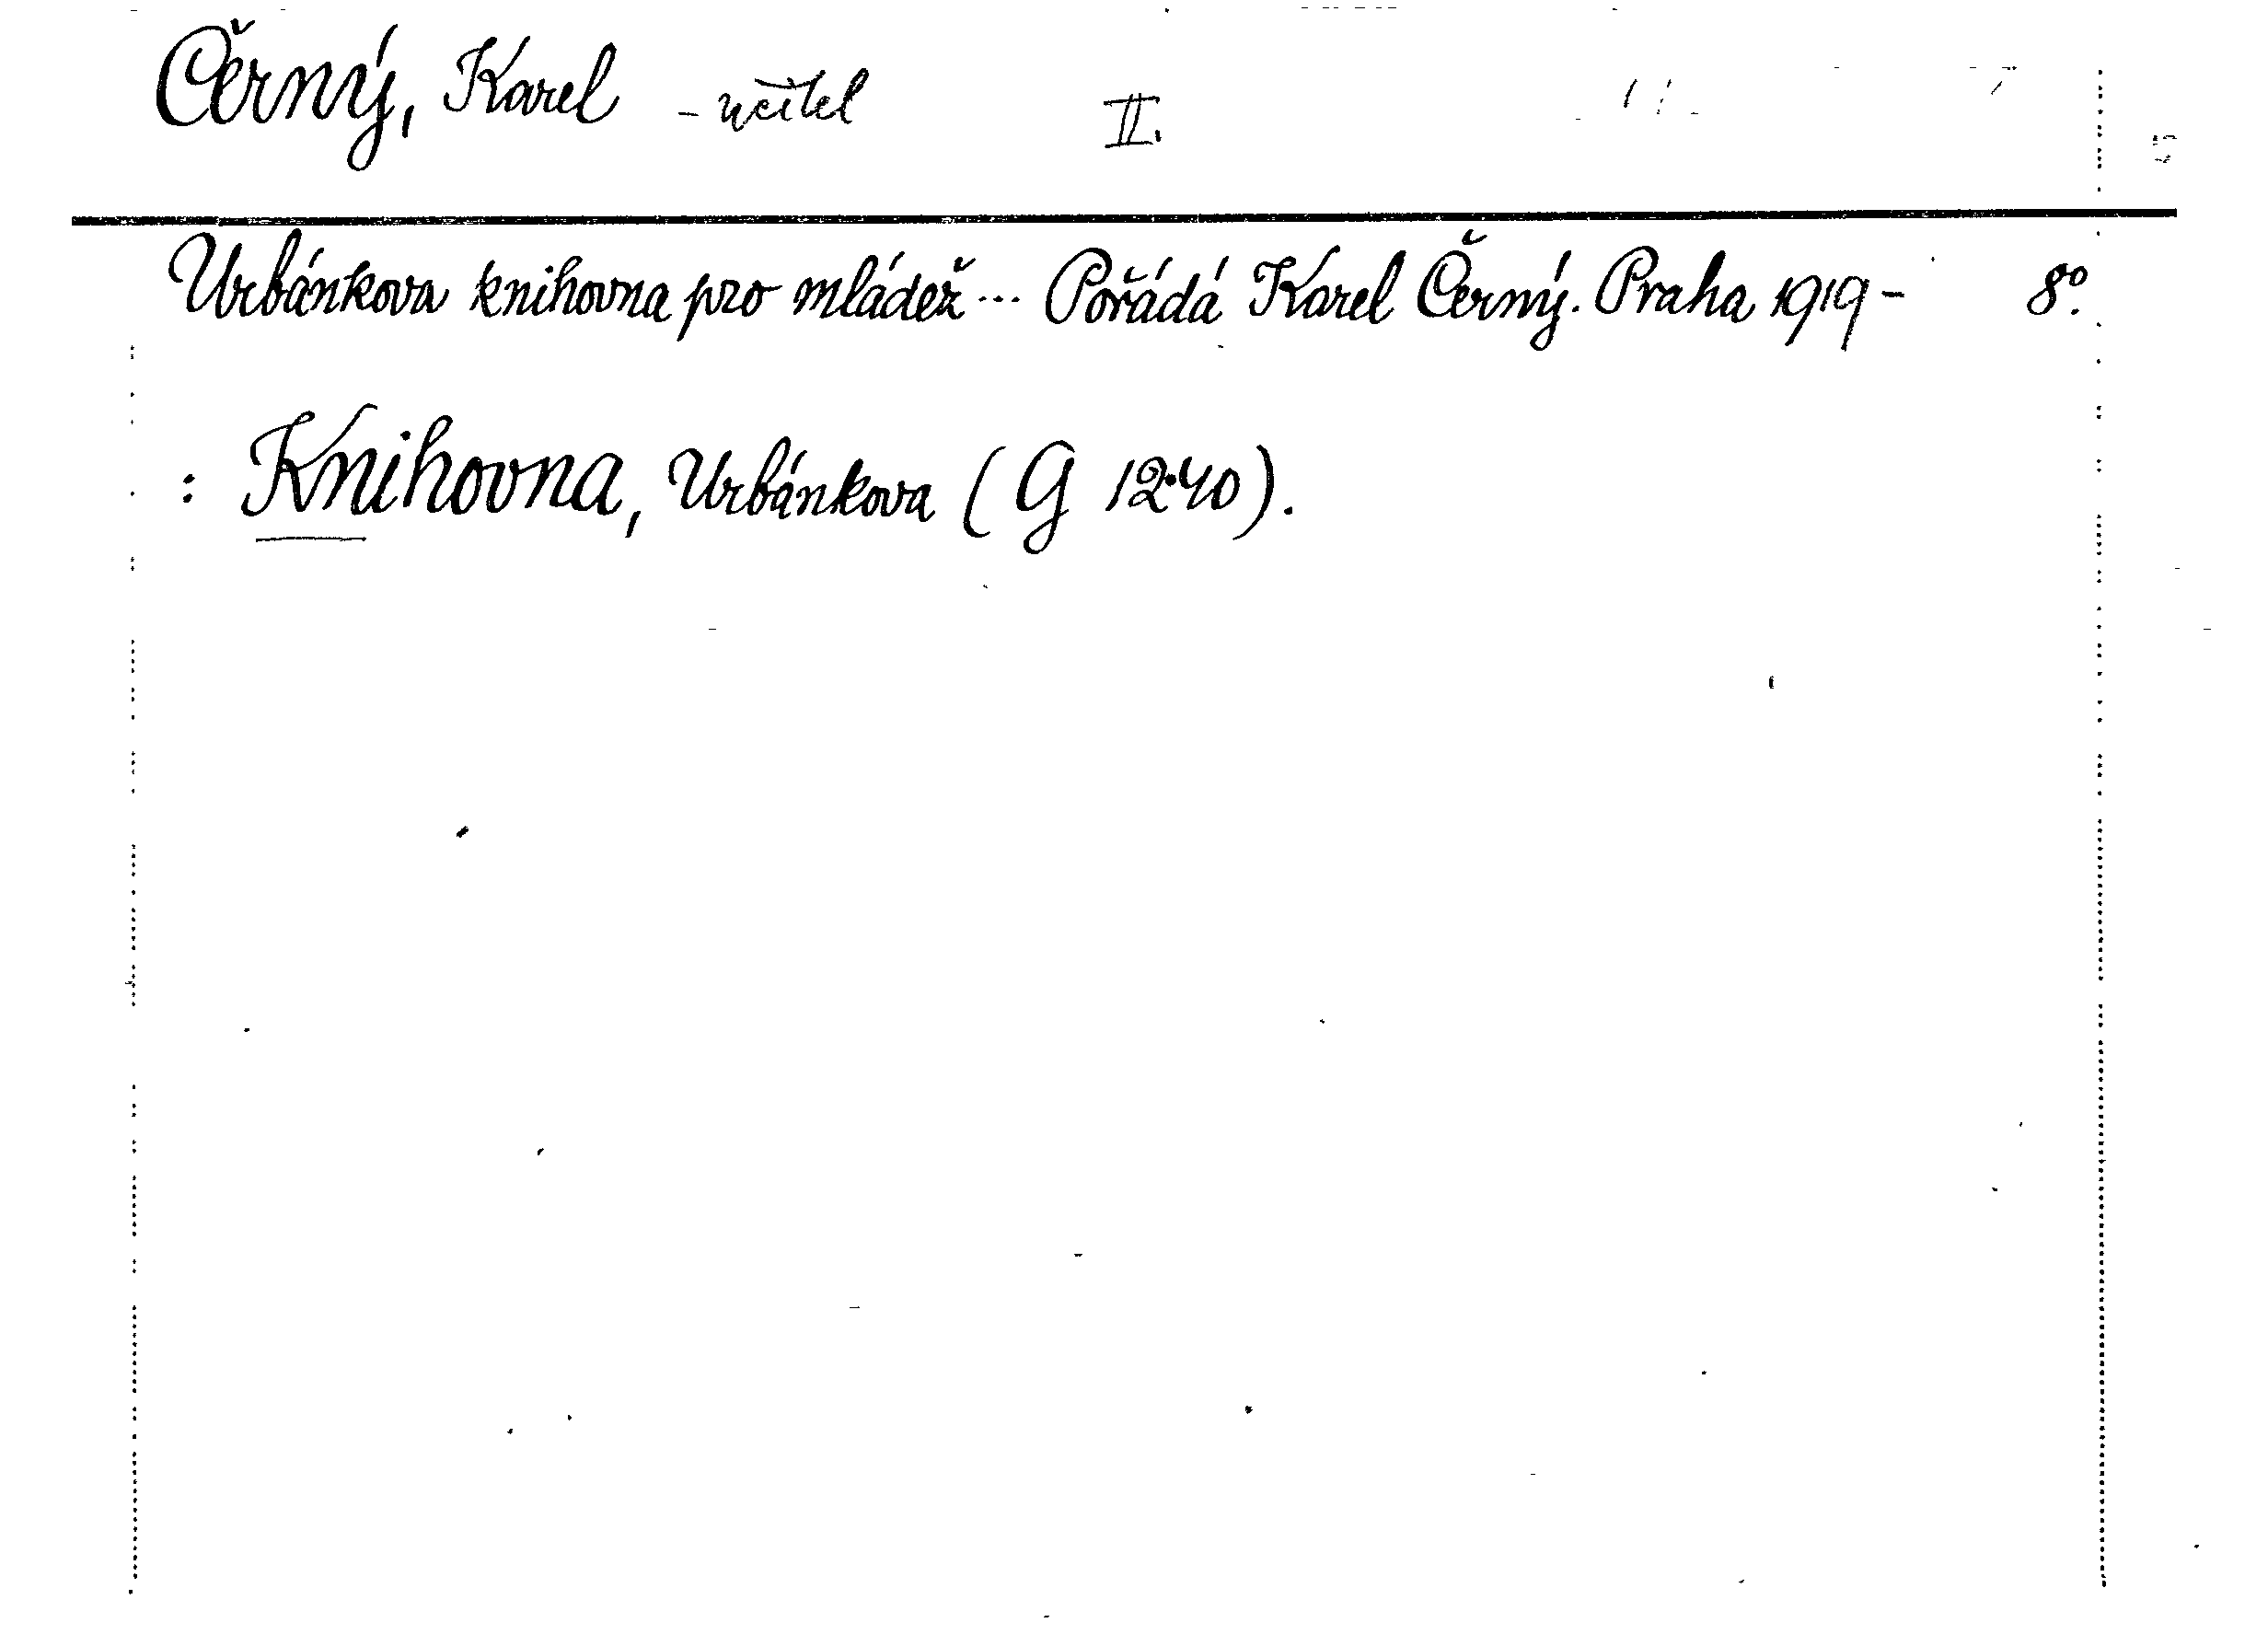 Černý, Karel - učitel II.
Urbánkova knihovna pro mládež ... Pořádá Karel Černý. Praha 1919 - 8°.
: Knihovna, Urbánkova (G 1240).